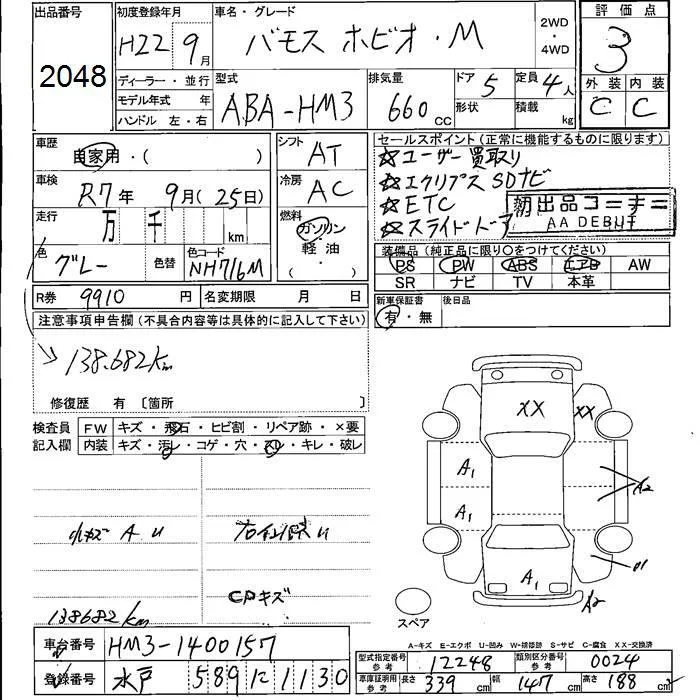 出品番号
2048
初度登録年月
H22 9月
車名・グレード
バモス ホビオ・M
2WD
・
4WD
評価点
3
外装 内装
C C
ディーラー・並行
モデル年式 年
ハンドル 左・右
型式
ABA-HM3
排気量
660 CC
ドア 5
形状
定員 4人
積載 kg
車歴
自家用・( )
車検
R7年 9月(25日)
走行
万 千 km
色
グレー
色替
色コード
NH716M
シフト
AT
冷房
AC
燃料
ガソリン
軽・油
・( )
セールスポイント(正常に機能するものに限ります)
☆ユーザー買取り
☆エクリプスSDナビ
☆ETC
☆スライドドア
初出品コーナー
AA DEBUT
装備品(純正品に限り○をつけてください)
PS PW ABS エアB AW
SR ナビ TV 本革
新車保証書
有・無
後日品
R券 9910 円
名変期限 月 日
注意事項申告欄(不具合内容等は具体的に記入して下さい)
138.682km
修復歴 有〔箇所 〕
検査員
記入欄
FW キズ・飛石・ヒビ割・リペア跡・×要
内装 キズ・汚レ・コゲ・穴・スレ・キレ・破レ
小キズ A U
CPキズ
138682km
XX
XX
A1
A1
A2
A1
A2
スペア
A-キズ E-エクボ U-凹み W-補修跡 S-サビ C-腐食 XX-交換済
車台番号
HM3-1400157
登録番号
水戸 589 に 1130
型式指定番号
参考
12248
類別区分番号
参考
0024
車庫証明用
参考
長さ 339 cm
幅 147 cm
高さ 188 cm